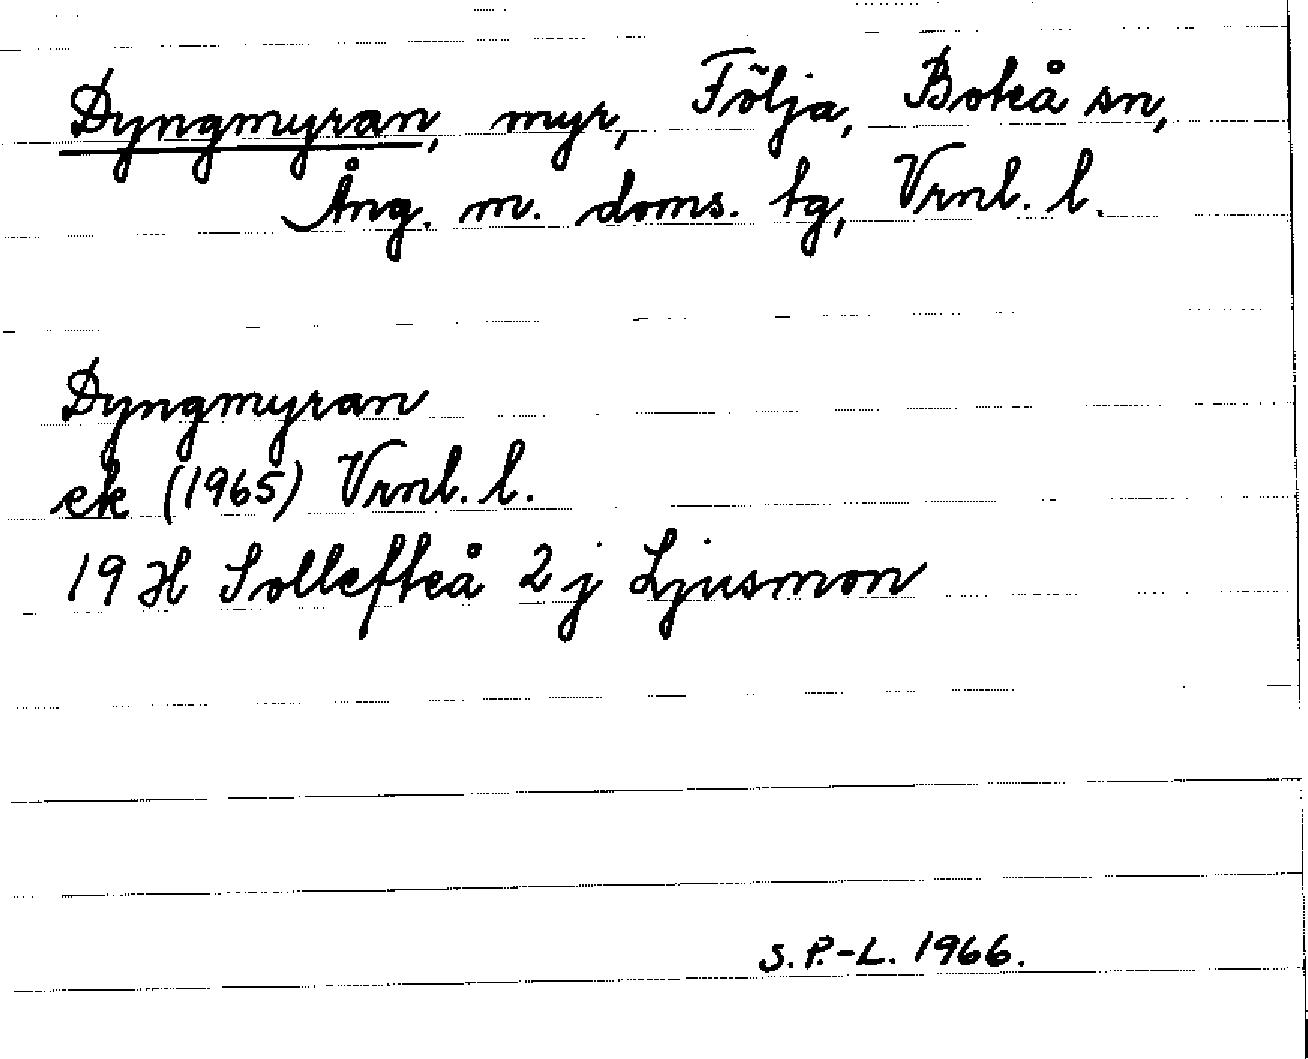 Dyngmyran, myr, Följa, Boteå sn,
Ång. m. doms. tg, Vrnl. l.
Dyngmyran
ek (1965) Vrnl. l.
19 H Sollefteå 2 j Ljusmon
S. P.-L. 1966.